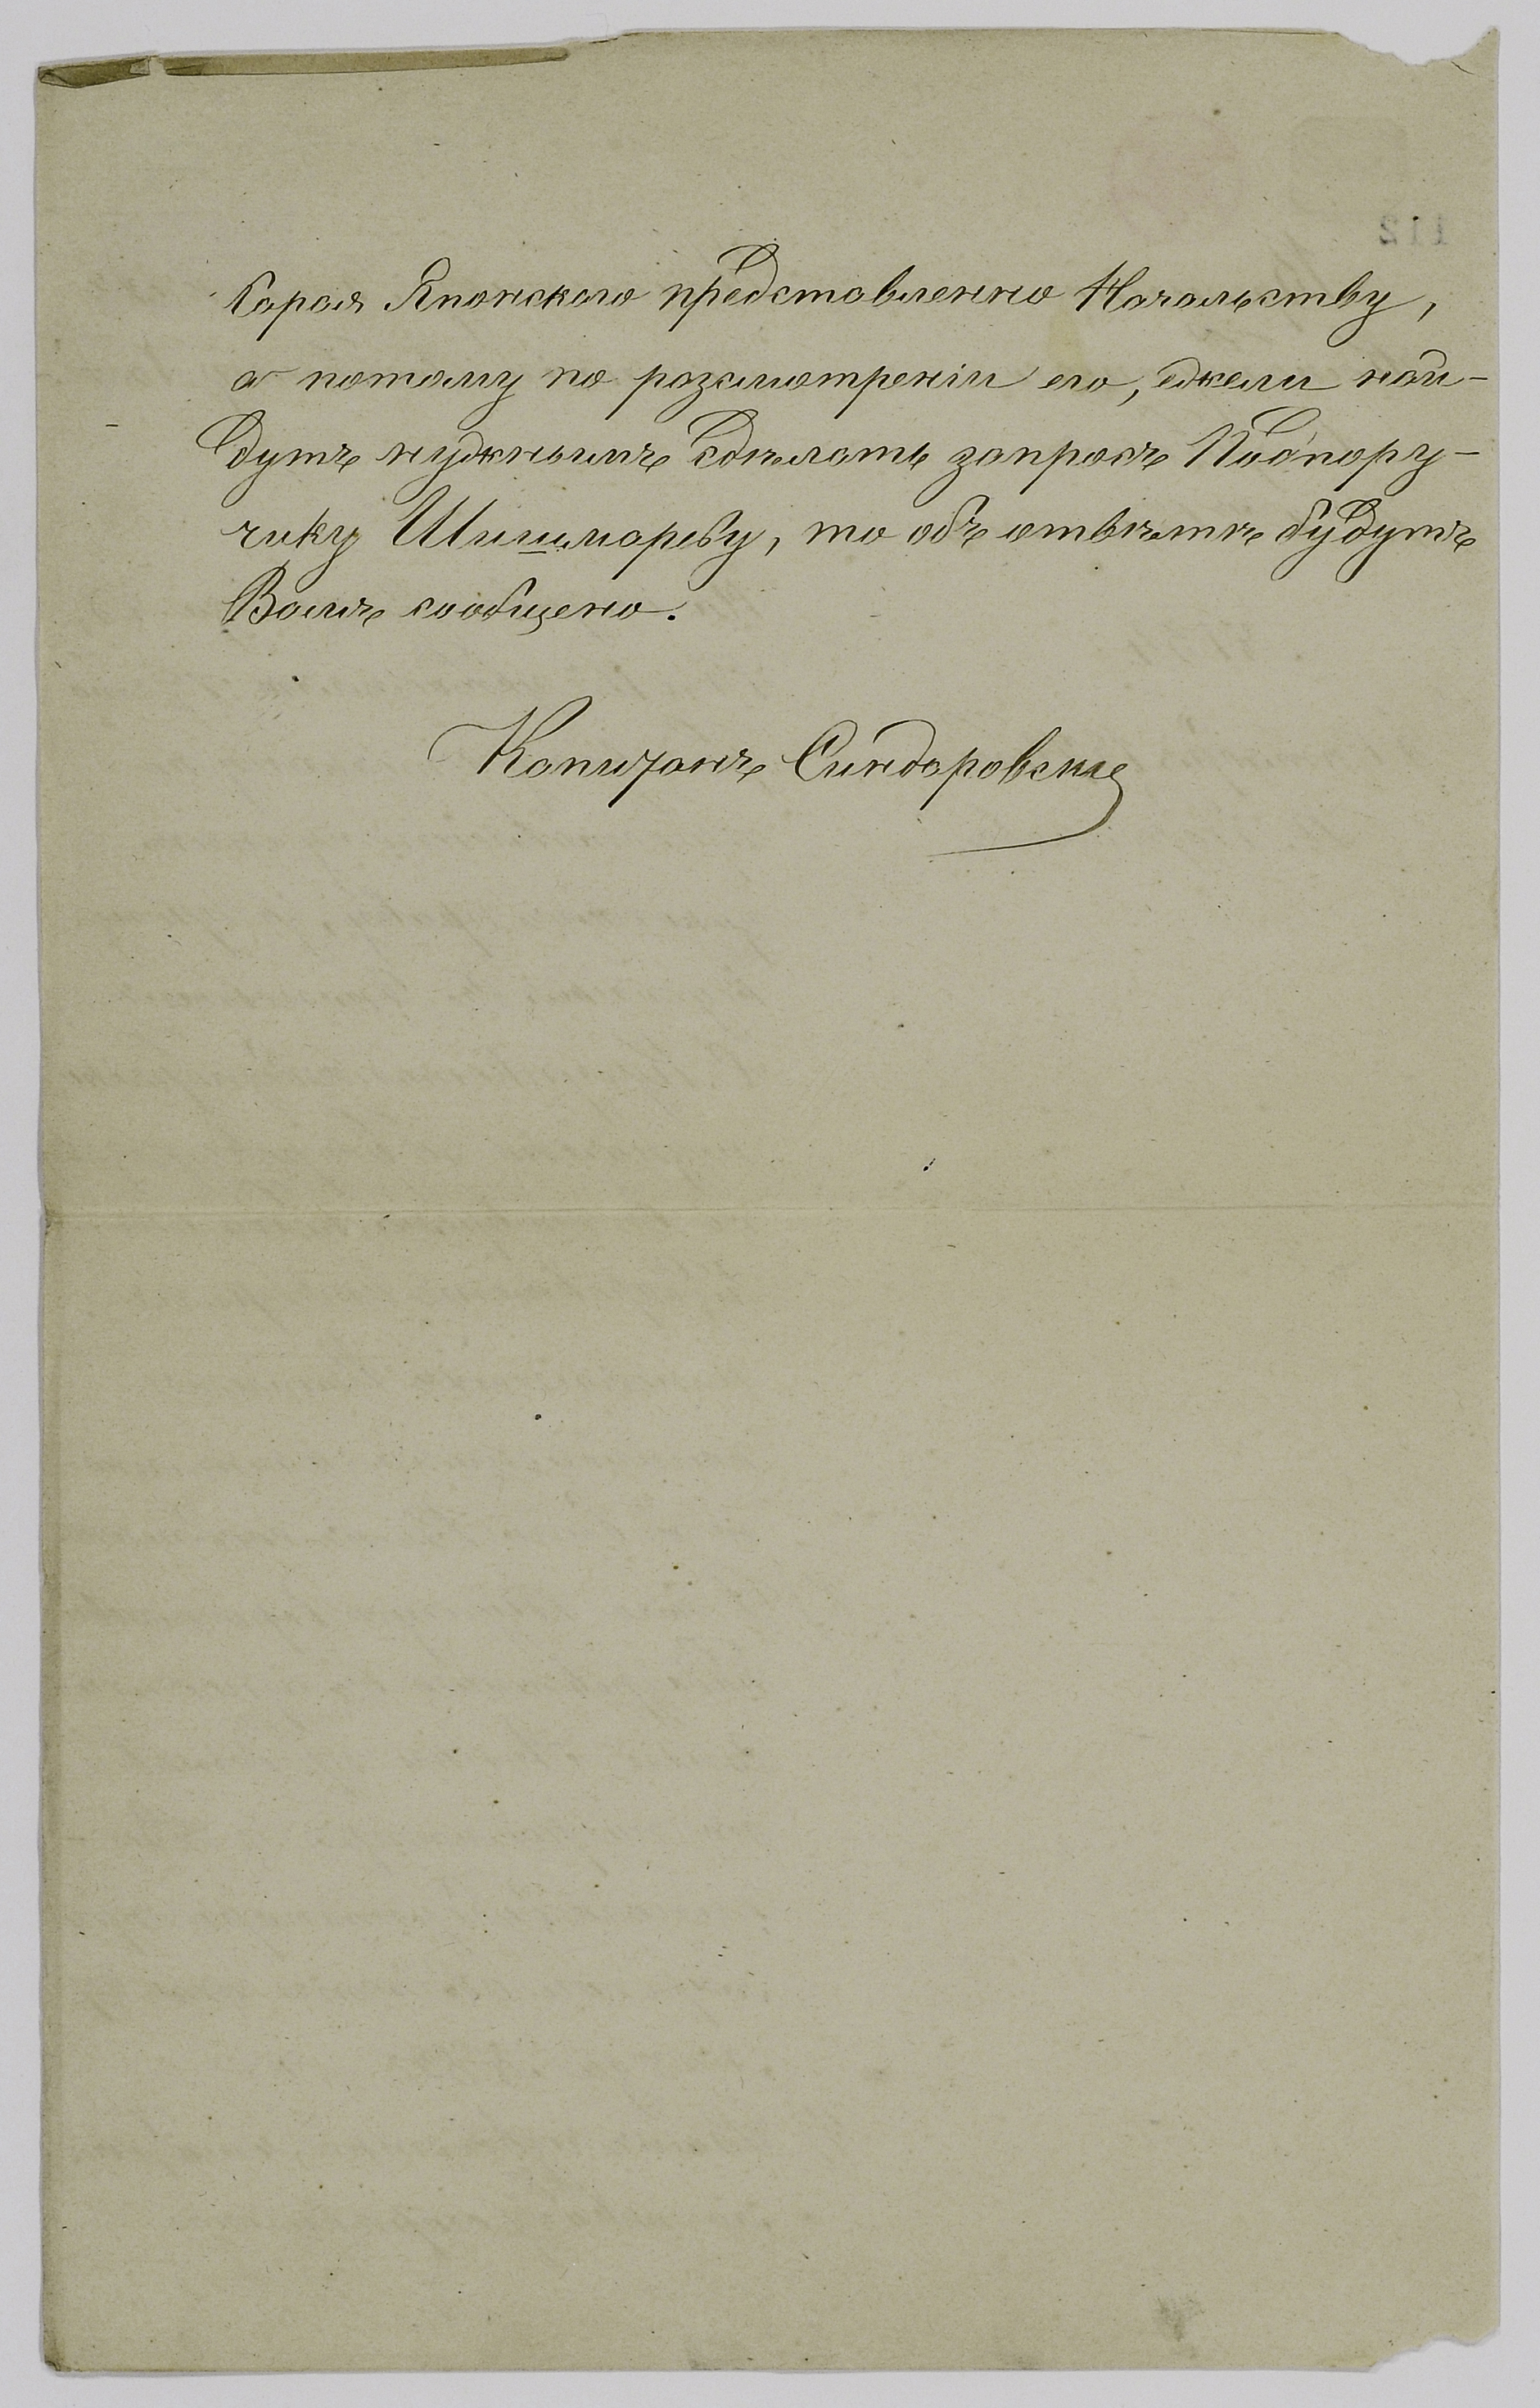 Караля Японскаго представленно Начальству,
а потому по разсмотреніи его, ежели най-
дутъ нужнымъ сдѣлать запросъ Подпору-
чику Шишмареву, то объ отвѣтѣ будутъ
Вамъ сообщено.
Капитанъ Синдаровскій
112